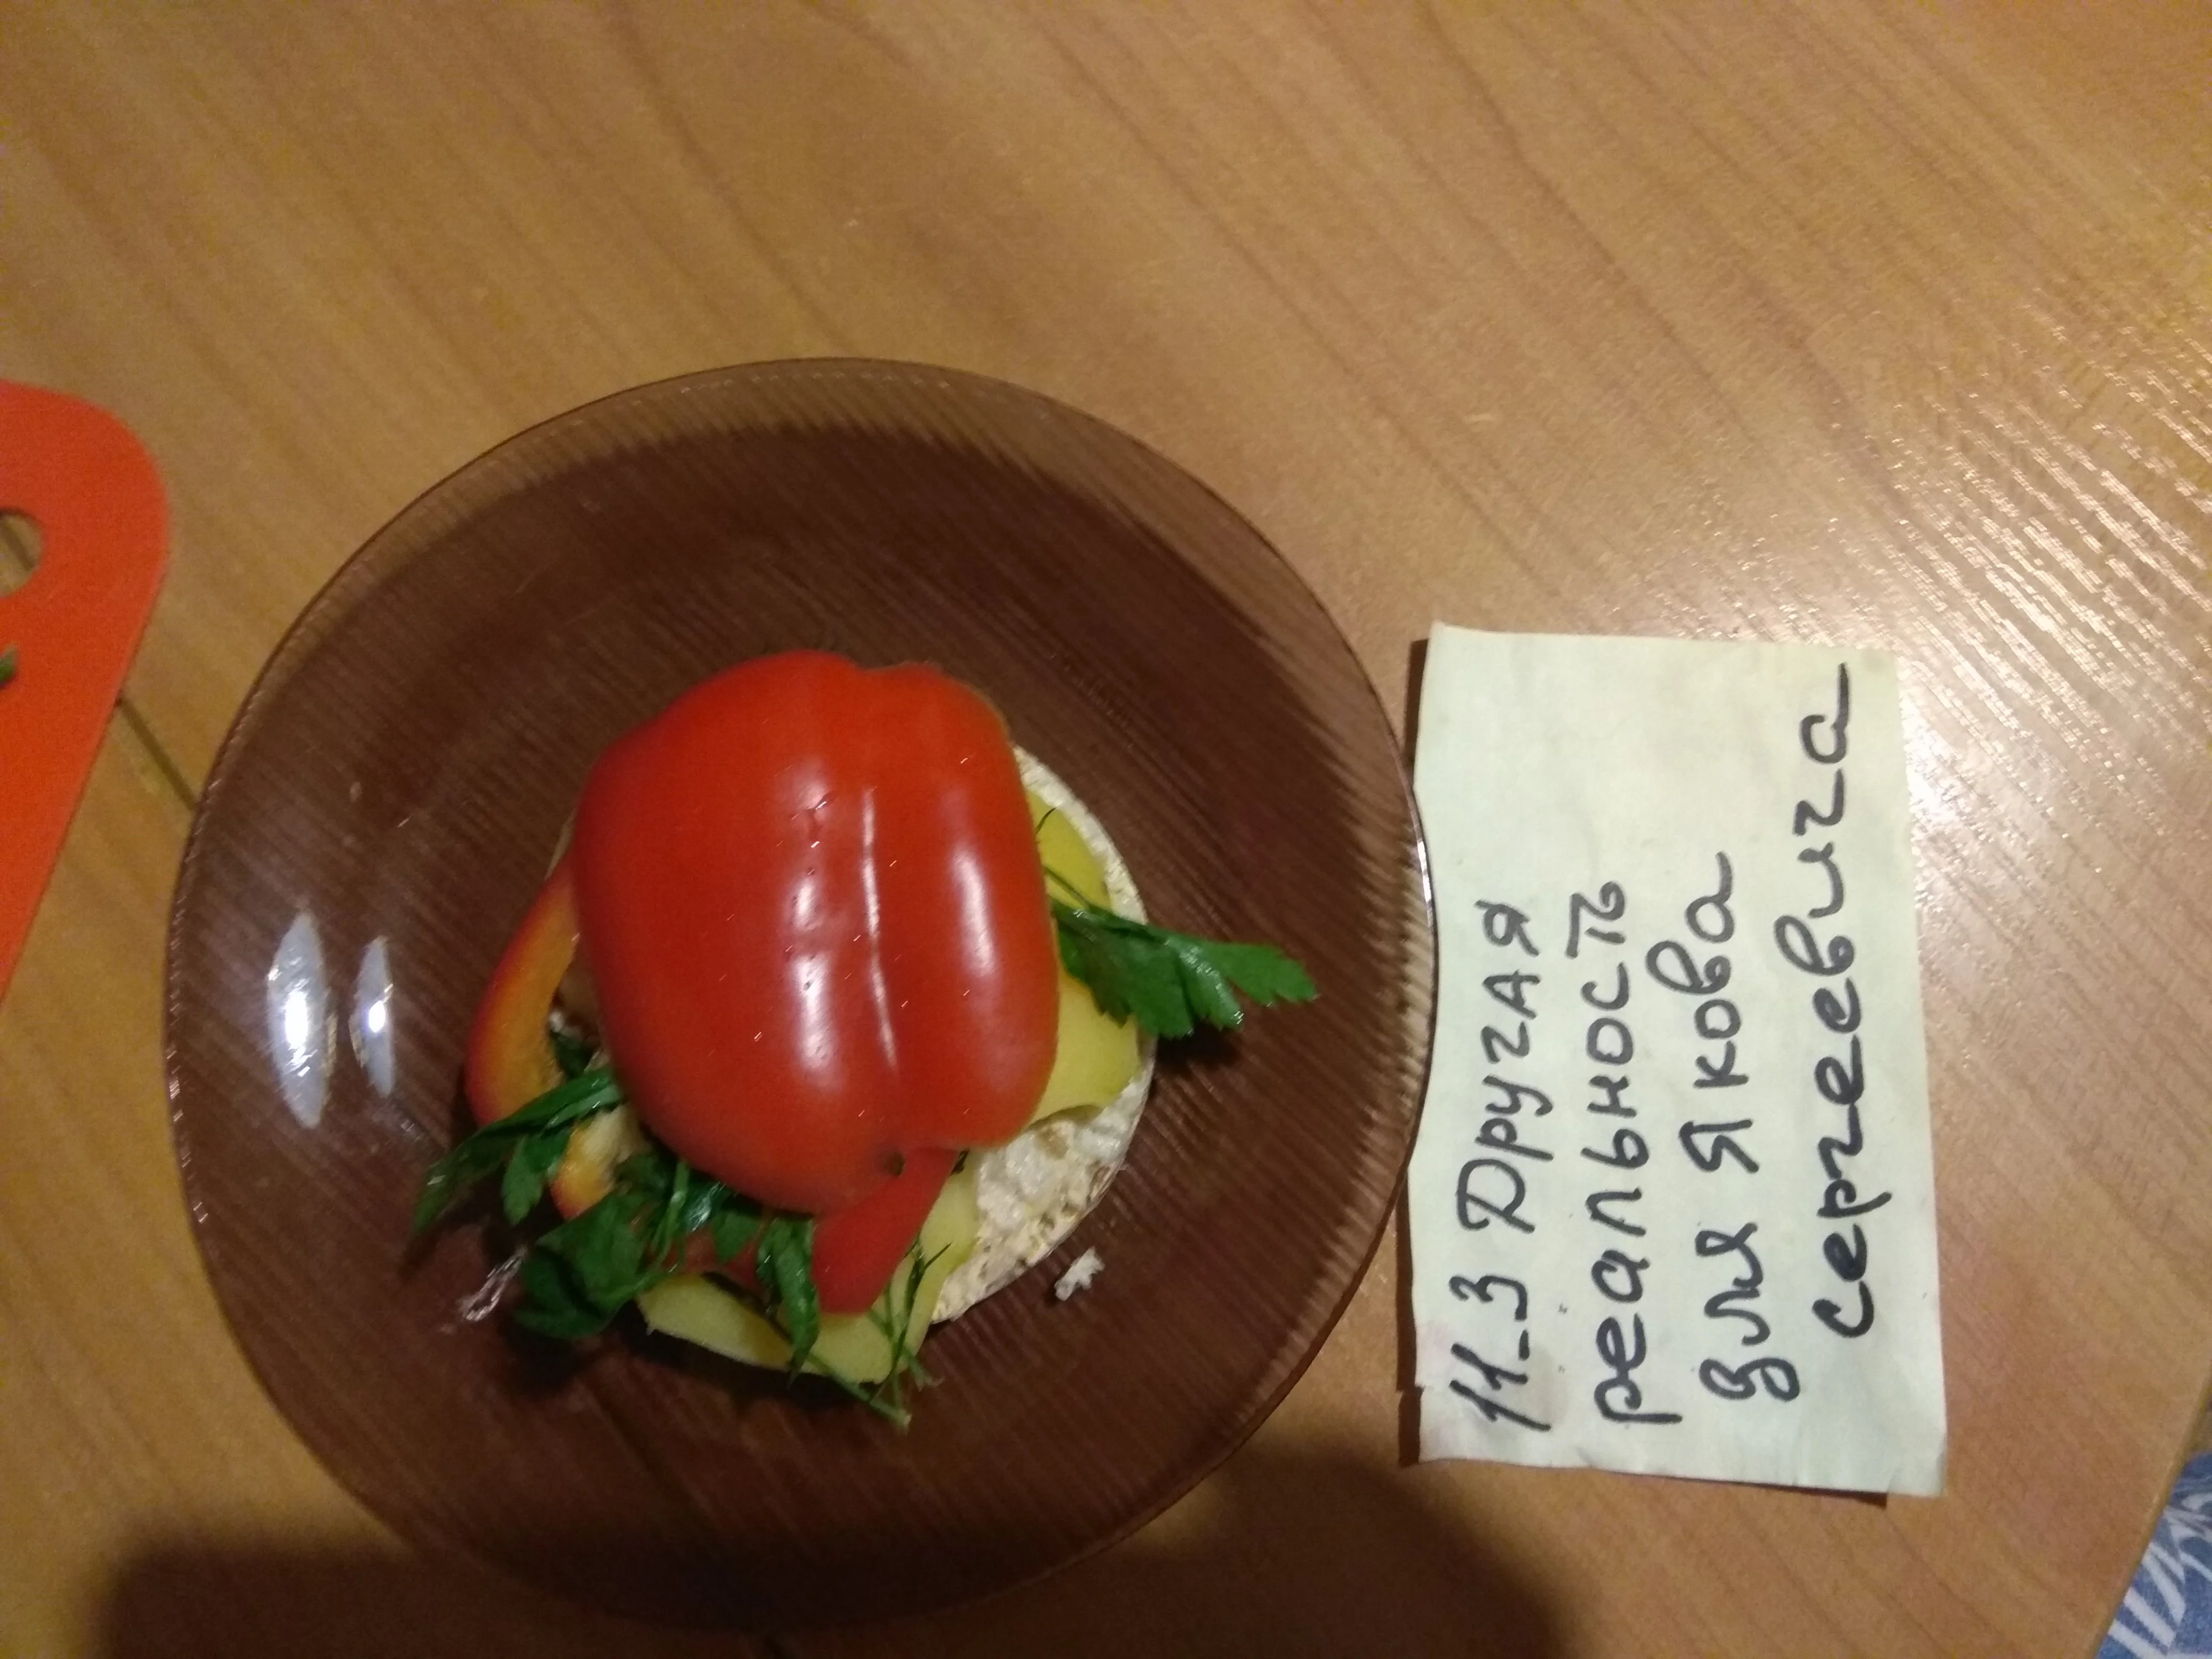 11-3 Другая
реальность
для Якова
сергеевича